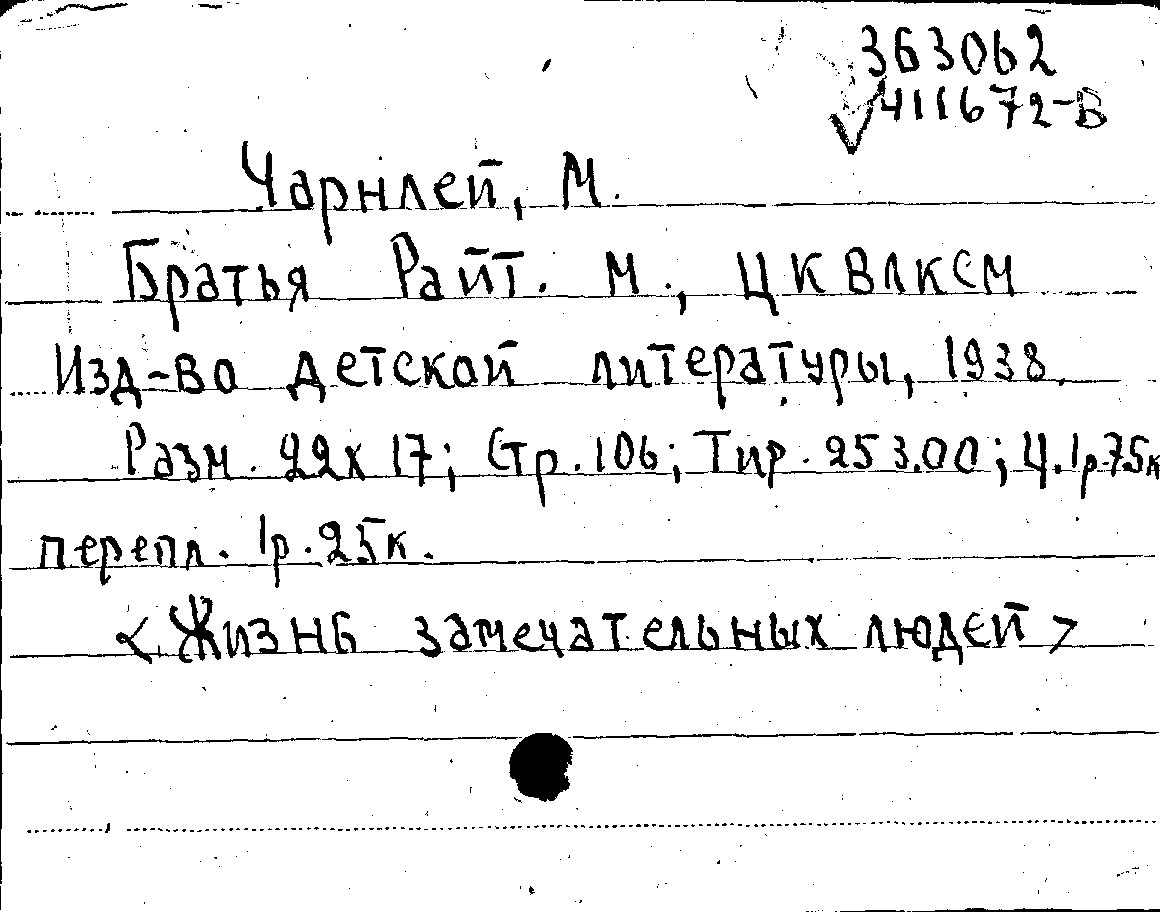 363062
411672-В
Чарнлей, М.
Братья Райт. М., ЦК ВЛКСМ
Изд-во детской литературы, 1938.
Разм. 22х17; Стр. 106; Тир. 253.00; Ц. 1р.75к
перепл. 1р.25к.
<Жизнь замечательных людей>